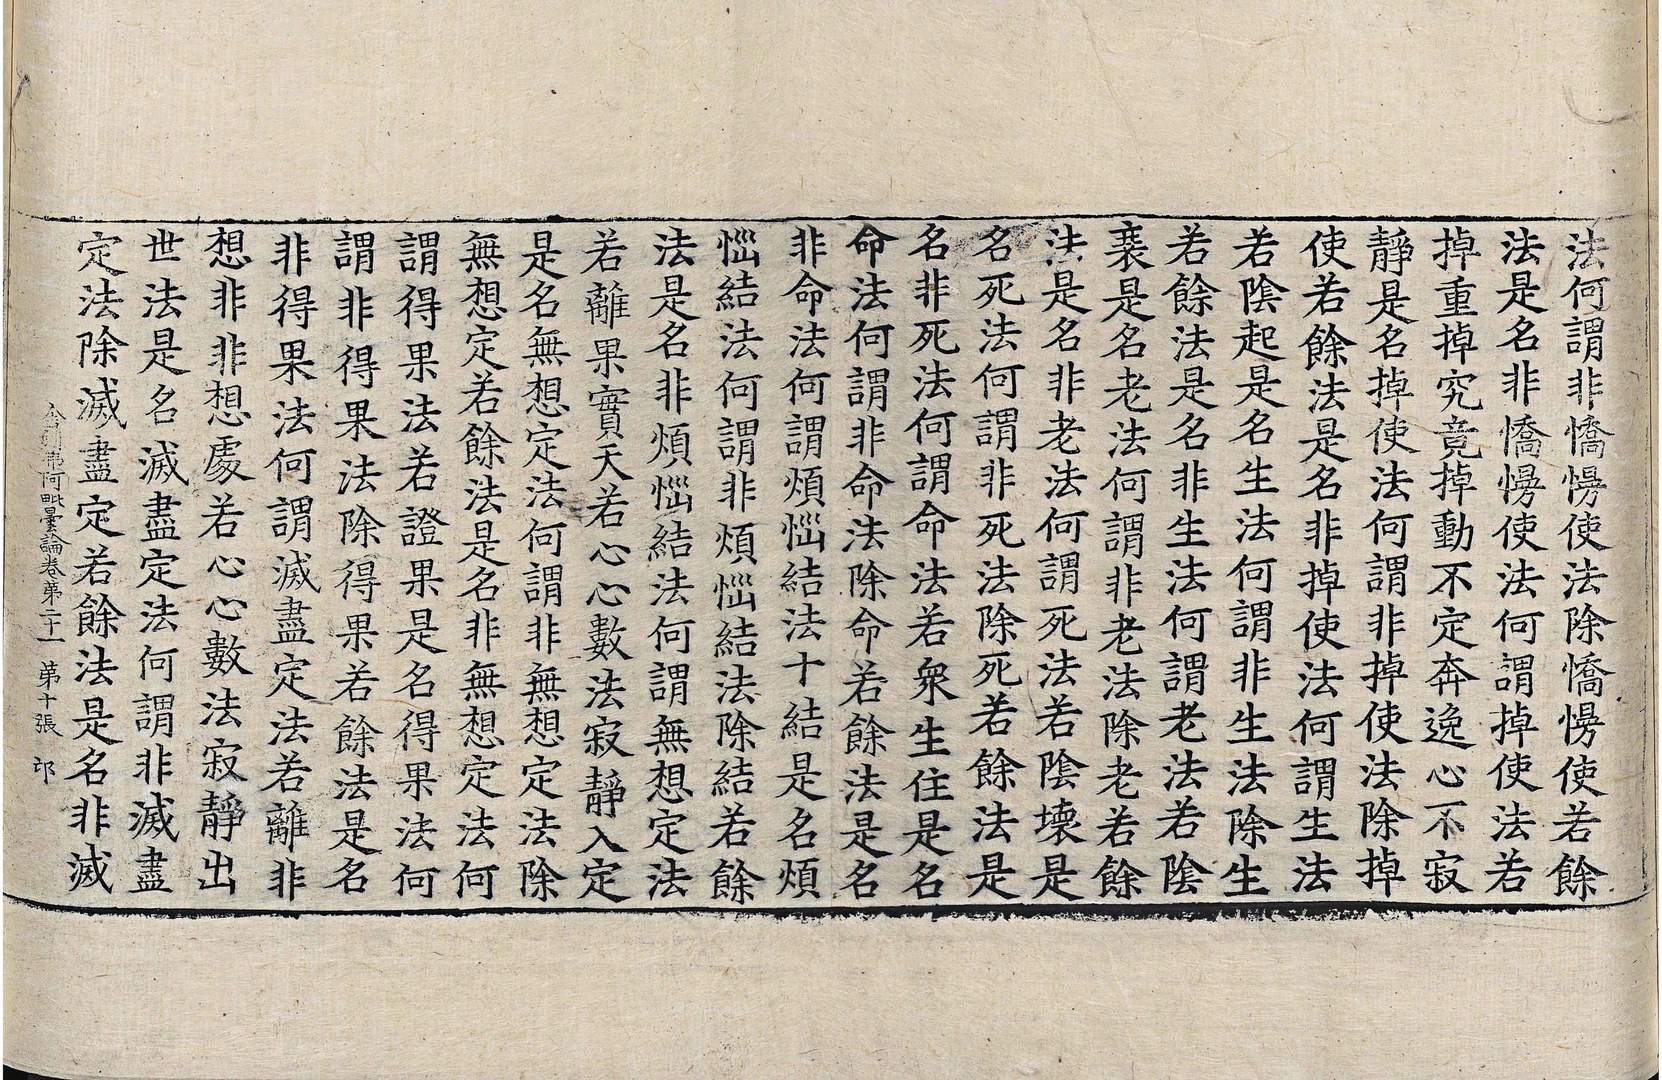 法何謂非憍慢使法除憍慢使若餘
法是名非憍慢使法何謂掉使法若
掉重掉究竟掉動不定奔逸心不寂
靜是名掉使法何謂非掉使法除掉
使若餘法是名非掉使法何謂生法
若陰起是名生法何謂非生法除生
若餘法是名非生法何謂老法若陰
衰是名老法何謂非老法除老若餘
法是名非老法何謂死法若陰壞是
名死法何謂非死法除死若餘法是
名非死法何謂命法若衆生住是名
命法何謂非命法除命若餘法是名
非命法何謂煩惱結法十結是名煩
惱結法何謂非煩惱結法除結若餘
法是名非煩惱結法何謂無想定法
若離果實天若心心數法寂靜入定
是名無想定法何謂非無想定法除
無想定若餘法是名非無想定法何
謂得果法若證果是名得果法何
謂非得果法除得果若餘法是名
非得果法何謂滅盡定法若離非
想非非想處若心心數法寂靜出
世法是名滅盡定法何謂非滅盡
定法除滅盡定若餘法是名非滅
舍利弗阿毗曇論卷第二十一 第十張